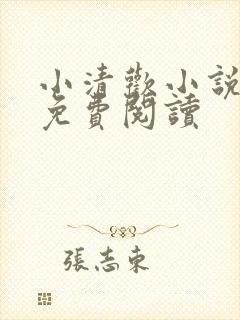 小清歡小說
免費閱讀
張志東